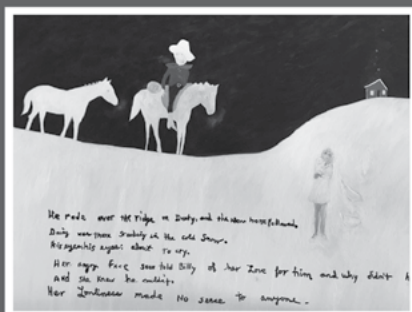 He rode over the ridge on Dusty, and the new horse followed.
Daisy was there in the cold Snow.
his eyes about To cry.
Her angry Face told Billy of her Love for him and why didn't
And she knew he couldn't.
Her Loneliness made No sense to anyone.